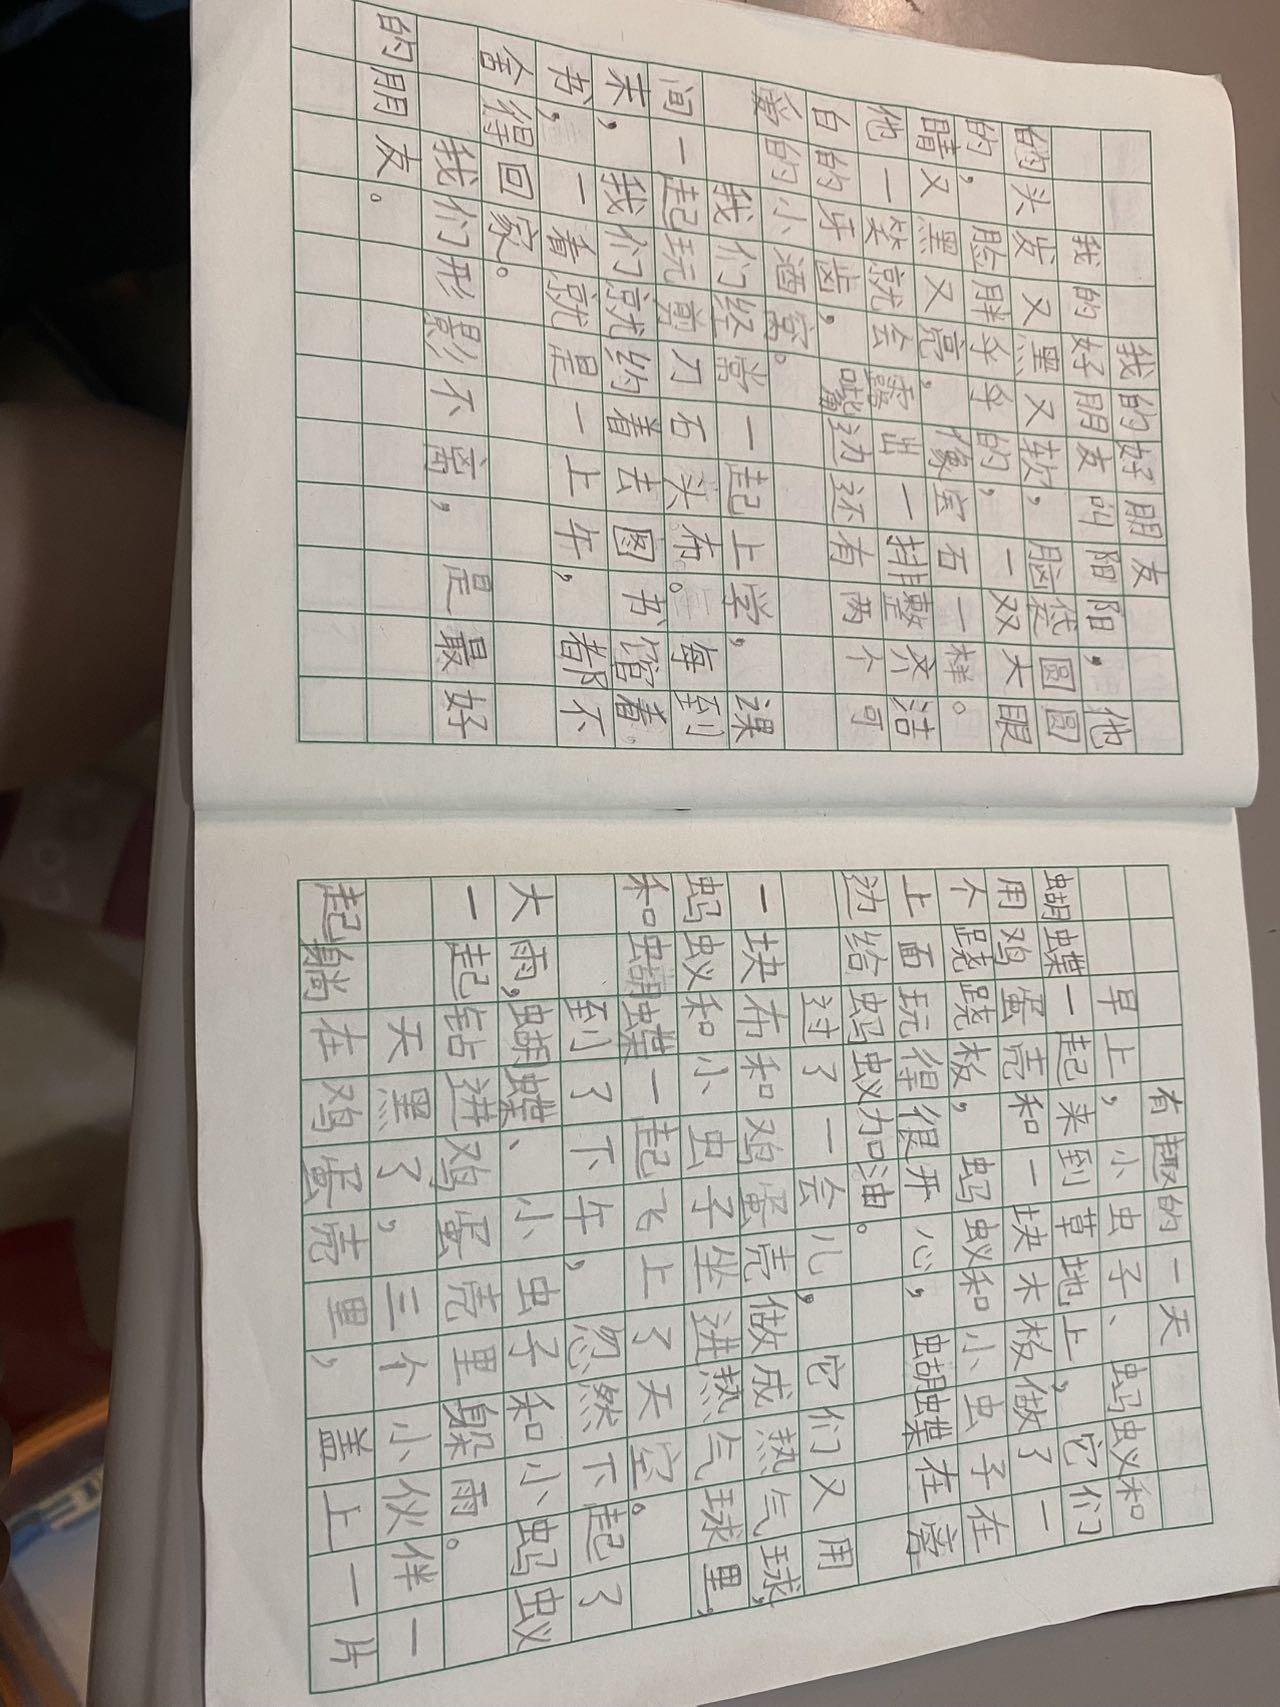 我的好朋友
我的好朋友叫阳阳，他
的头发又黑又软，脑袋圆圆
的，脸胖乎乎的，一双大眼
睛又黑又亮，像宝石一样。
他一笑就会露出一排整齐洁
白的牙齿，嘴边还有两个可
爱的小酒窝。
我们经常一起上学，课
间一起玩剪刀石头布。每到
末，我们就约着去图书馆看
书，一看就是一上午，都不
舍得回家。
我们形影不离，是最好
的朋友。
有趣的一天
早上，小虫子、蚂蚁和
蝴蝶一起来到草地上，它们
用鸡蛋壳和一块木板做了一
个跷跷板，蚂蚁和小虫子在
上面玩得很开心，蝴蝶在旁
边给蚂蚁加油。
过了一会儿，它们又用
一块布和鸡蛋壳做成热气球，
蚂蚁和小虫子坐进热气球里，
和蝴蝶一起飞上了天空。
到了下午，忽然下起了
大雨，蝴蝶、小虫子和小蚂蚁
一起钻进鸡蛋壳里躲雨。
天黑了，三个小伙伴一
起躺在鸡蛋壳里，盖上一片